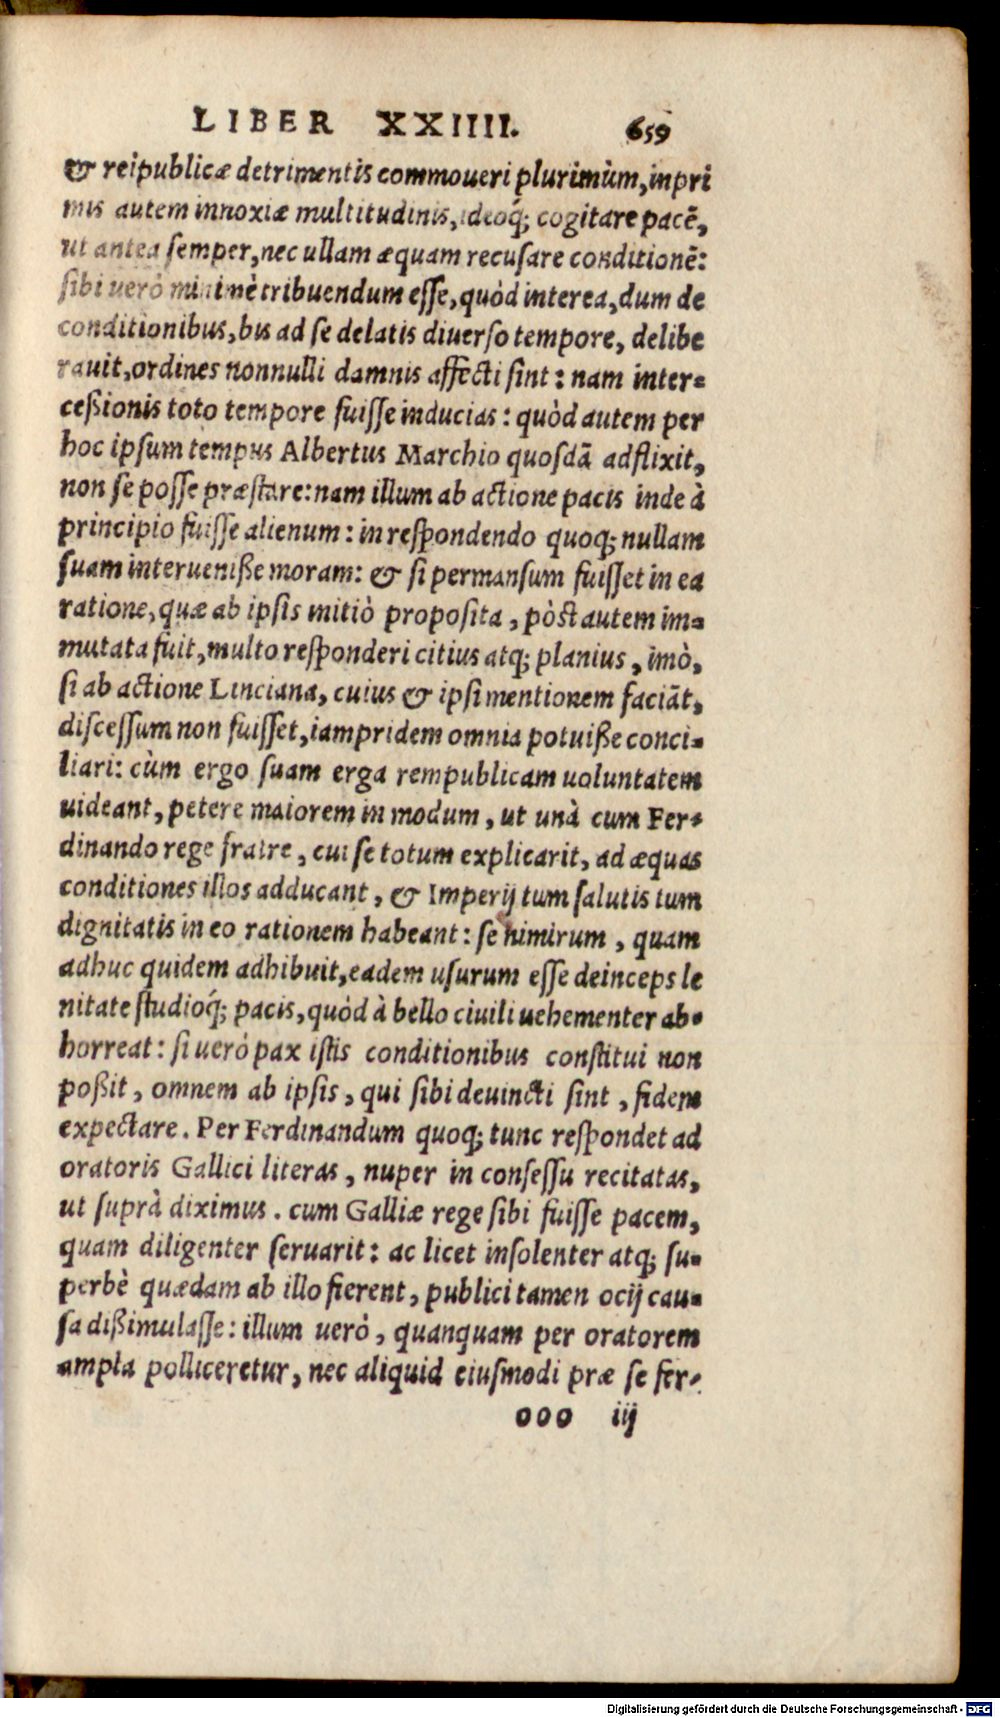 LIBER XXIIII. 659
& reipublicæ detrimentis commoueri plurimùm, inpri
mis autem innoxiæ multitudinis, ideoq́; cogitare pacē,
ut antea semper, nec ullam æquam recusare conditionē:
sibi uerò minimè tribuendum esse, quòd interea, dum de
conditionibus, bis ad se delatis diuerso tempore, delibe
rauit, ordines nonnulli damnis affecti sint: nam inter-
ceßionis toto tempore fuisse inducias: quòd autem per
hoc ipsum tempus Albertus Marchio quosdā adflixit,
non se posse præstare: nam illum ab actione pacis inde à
principio fuisse alienum: in respondendo quoq; nullam
suam interueniße moram: & si permansum fuisset in ea
ratione, quæ ab ipsis initiò proposita, pòst autem im-
mutata fuit, multo responderi citius atq; planius, imò,
si ab actione Linciana, cuius & ipsi mentionem faciāt,
discessum non fuisset, iampridem omnia potuiße conci-
liari: cùm ergo suam erga rempublicam uoluntatem
uideant, petere maiorem in modum, ut unà cum Fer-
dinando rege fratre, cui se totum explicarit, ad æquas
conditiones illos adducant, & Imperij tum salutis tum
dignitatis in eo rationem habeant: se nimirum, quam
adhuc quidem adhibuit, eadem usurum esse deinceps le
nitate studioq́; pacis, quòd à bello ciuili uehementer ab-
horreat: si uerò pax istis conditionibus constitui non
poßit, omnem ab ipsis, qui sibi deuincti sint, fidem
expectare. Per Ferdinandum quoq; tunc respondet ad
oratoris Gallici literas, nuper in consessu recitatas,
ut suprà diximus. cum Galliæ rege sibi fuisse pacem,
quam diligenter seruarit: ac licet insolenter atq; su-
perbè quædam ab illo fierent, publici tamen ocij cau-
sa dißimulasse: illum uerò, quanquam per oratorem
ampla polliceretur, nec aliquid eiusmodi præ se fer-
ooo iij
Digitalisierung gefördert durch die Deutsche Forschungsgemeinschaft - DFG